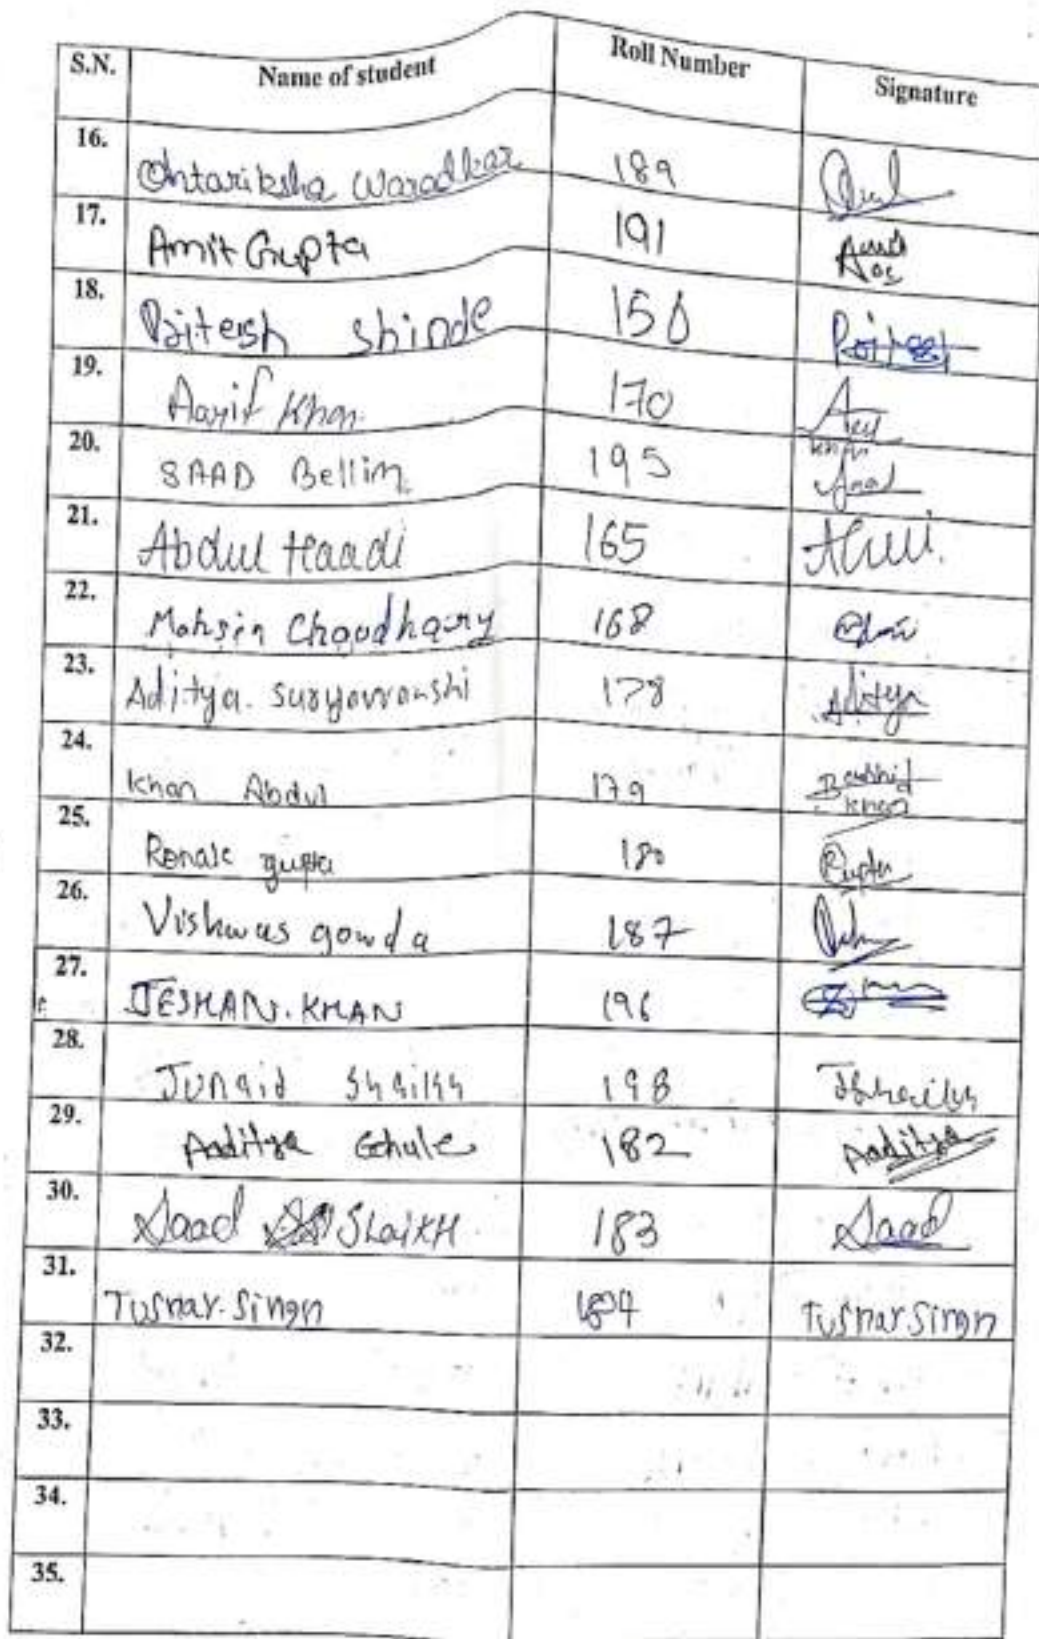 S.N. Name of student Roll Number Signature
16. Ontariksha Waradkar 189
17. Amit Gupta 191 Amit
18. Ritesh Shinde 150 Ritesh
19. Aarif Khan. 170 Khan
20. SAAD Bellim 195 Saad
21. Abdul Haadi 165
22. Mohsin Choudhary 168
23. Aditya. Suryavanshi 178 Aditya
24. Khan Abdul 179 Khan
25. Ronak gupta 180 Gupta
26. Vishwas gowda 187
27. JESHAN. KHAN 196
28. Junaid Shaikh 198 JShaikh
29. Aaditya Ghule 182 Aaditya
30. Saad Shaikh 183 Saad
31. Tushar. Singh Tushar Singh
32.
33.
34.
35.